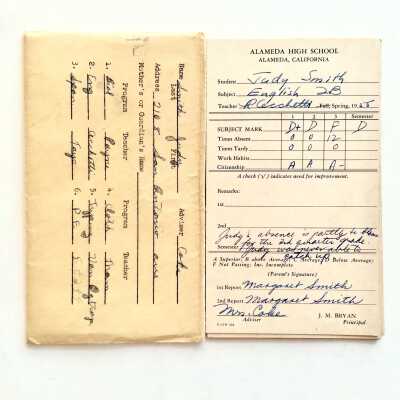 Name Smith Judy Adviser Cake
Last First
Address 2105 San Antonio ave
Mother's or Guardian's Name
Program Teacher Program Teacher
1. Biol Payne 4. Cloth
2. Eng Cecchettini 5. Typing
3. Span 6. P.E.
ALAMEDA HIGH SCHOOL
ALAMEDA, CALIFORNIA
Student Judy Smith
Subject English 2B
Teacher R. Cecchetti Fall, Spring, 195
1 2 3 Semester
SUBJECT MARK D+ D F D
Times Absent 0 0 12
Times Tardy 0 0 0
Work Habits
Citizenship A A A-
A check (√) indicates need for improvement.
Remarks:
1st
2nd Judy's absence is partly to blame
for the 3rd quarter grade.
Semester Judy was never able to
catch up
A Superior; B Above Average; C Average; D Below Average;
F Not Passing; Inc. Incomplete.
(Parent's Signature)
1st Report Margaret Smith
2nd Report Margaret Smith
Mrs. Cake J. M. BRYAN,
Adviser Principal